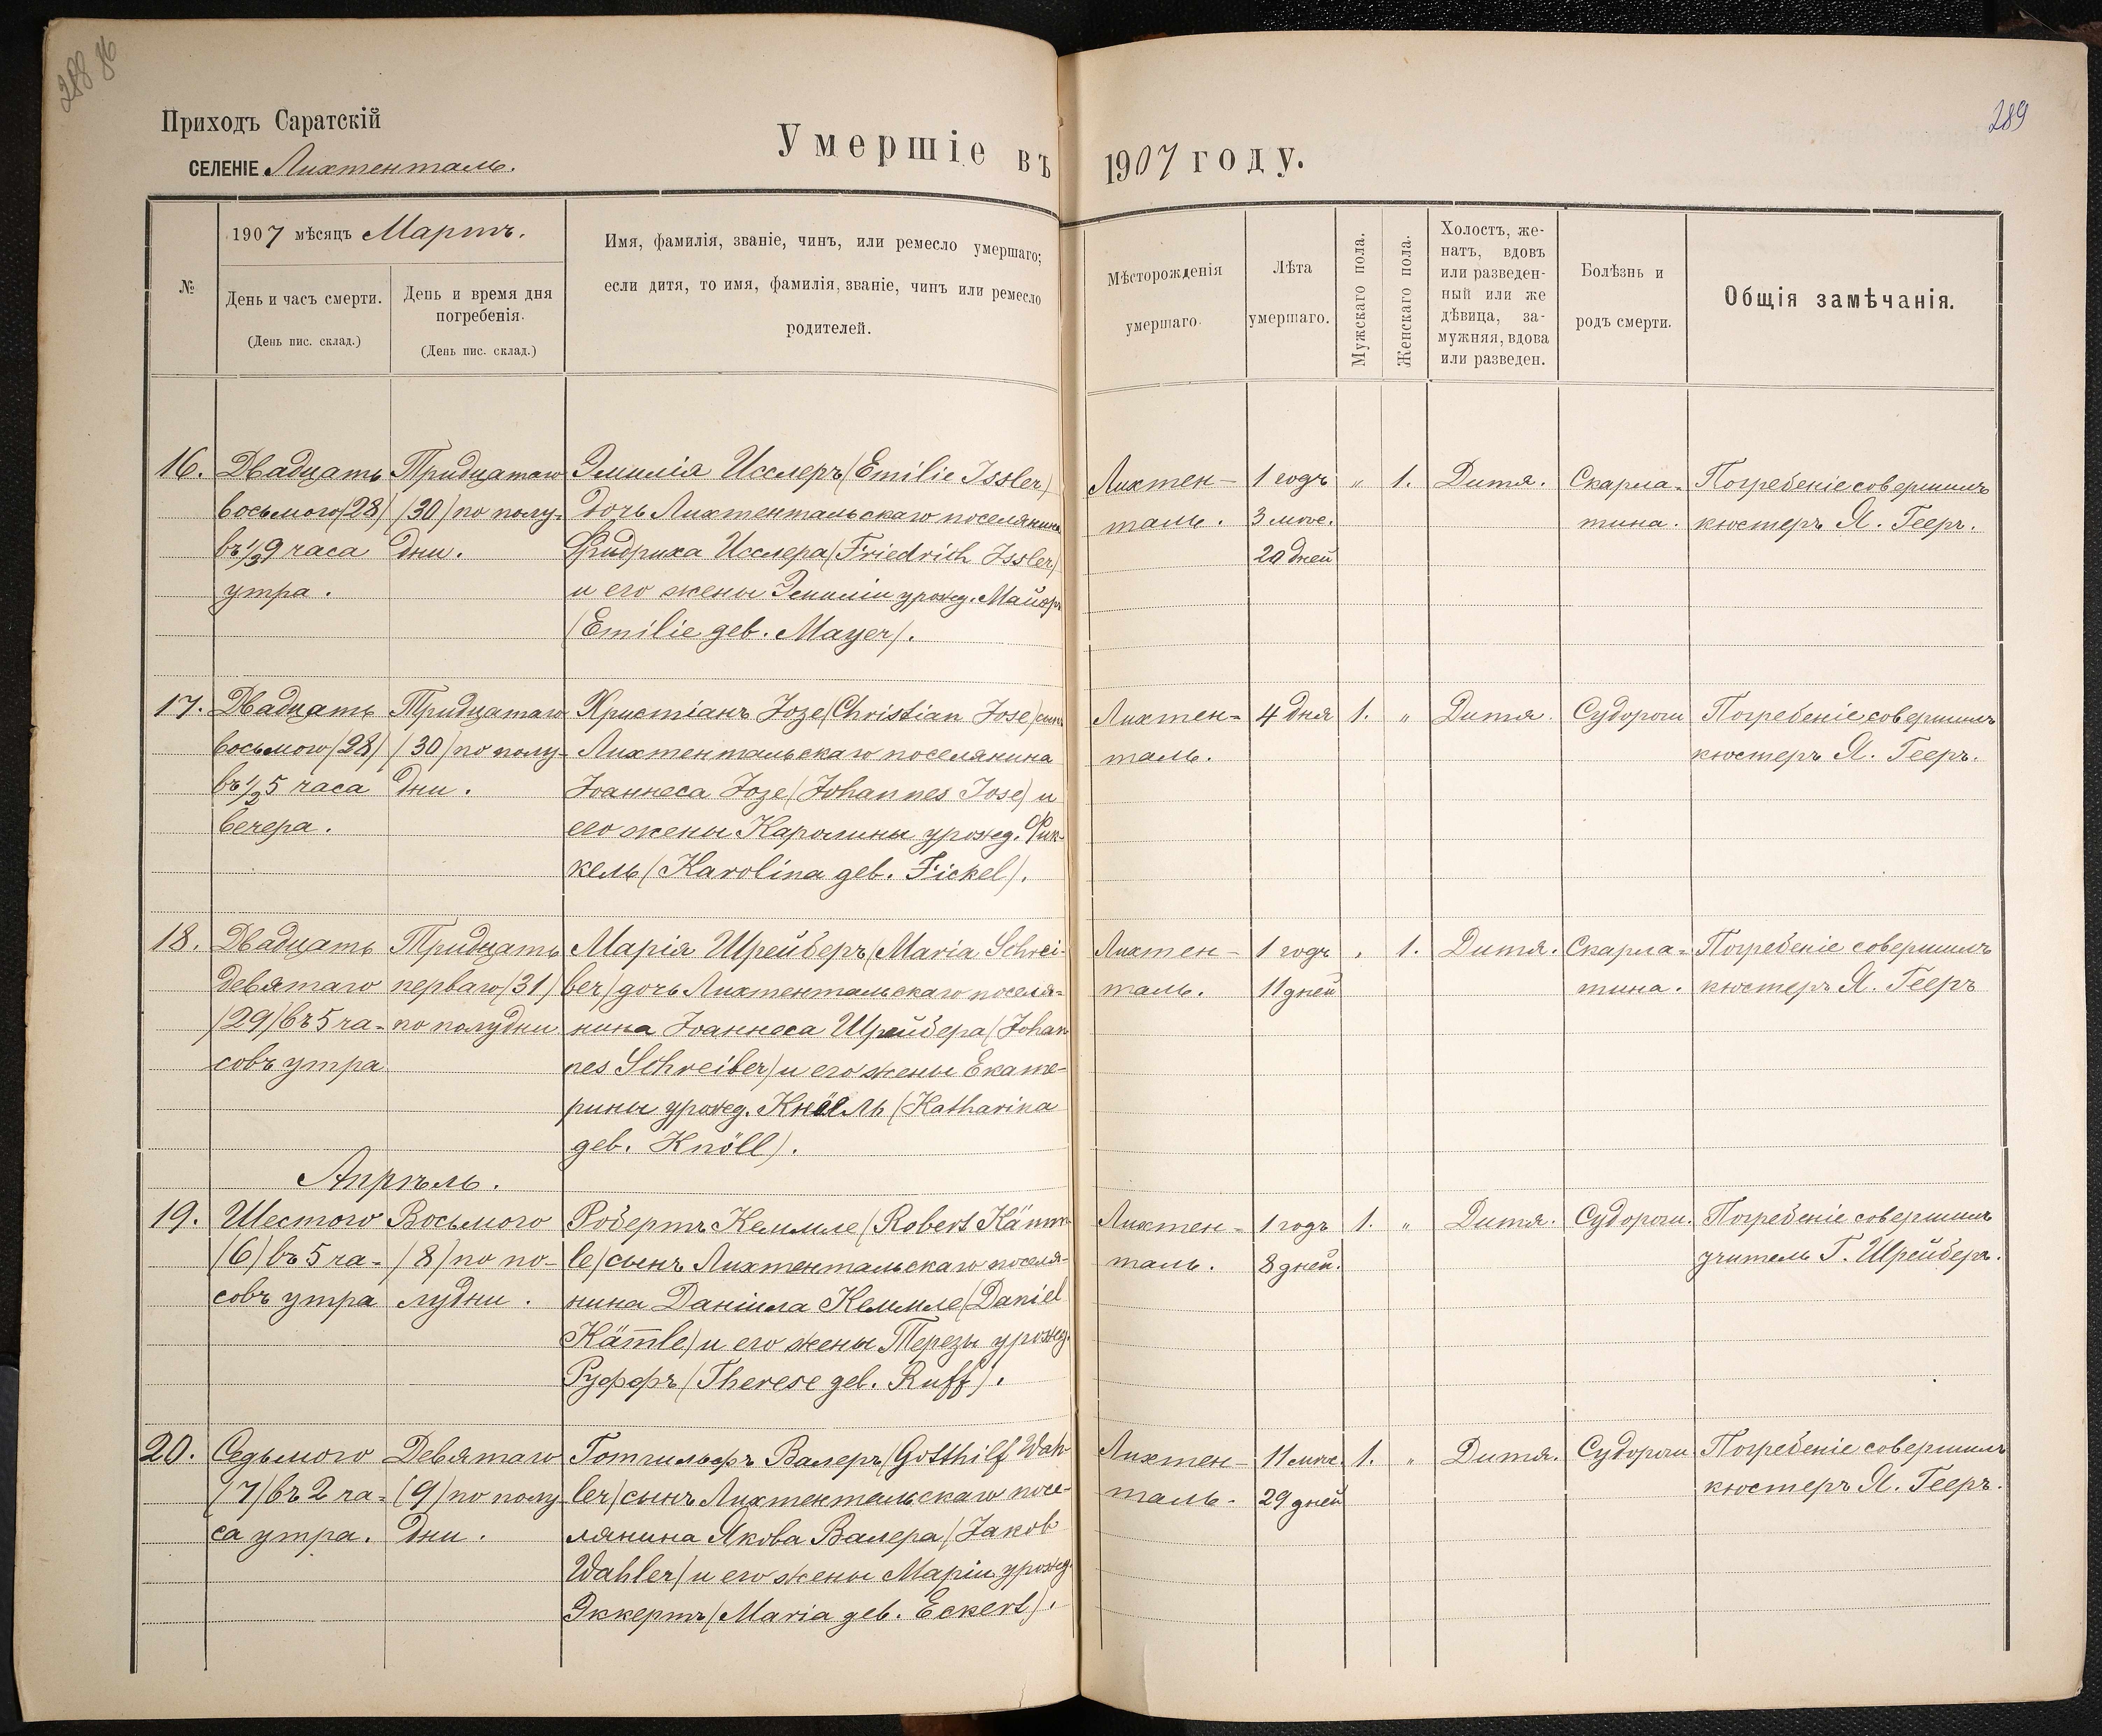 288 86
289
Приходъ Саратскій
СЕЛЕНІЕ Лихтенталь.
Умершіе въ 1907 году.
№
1907 мѣсяцъ Мартъ.
День и часъ смерти.
(День пис. склад.)
День и время дня
погребенія.
(День пис. склад.)
Имя, фамилія, званіе, чинъ, или ремесло умершаго;
если дитя, то имя, фамилія, званіе, чинъ или ремесло
родителей.
Мѣсторожденія
умершаго.
Лѣта
умершаго.
Мужскаго пола.
Женскаго пола.
Холостъ, же-
натъ, вдовъ
или разведен-
ный или же
дѣвица, за-
мужняя, вдова
или разведен.
Болѣзнь и
родъ смерти.
Общія замѣчанія.
16.
Двадцать
восьмого (28)
въ ½ 9 часа
утра.
Тридцатаго
(30) по полу-
дни.
Эмилія Исслеръ (Emilie Issler)
дочь Лихтентальскаго поселянина
Фридриха Исслера (Friedrich Issler)
и его жены Эмиліи урожд. Майеръ
(Emilie geb. Mayer).
Лихтен-
таль.
1 годъ
3 мѣс.
20 дней
„
1.
Дитя.
Скарла-
тина.
Погребеніе совершилъ
кюстеръ Я. Гееръ.
17.
Двадцать
восьмого (28)
въ ½ 5 часа
вечера.
Тридцатаго
(30) по полу-
дни.
Христіанъ Іозе (Christian Jose) сынъ
Лихтентальскаго поселянина
Іоаннеса Іозе (Johannes Jose) и
его жены Каролины урожд. Фик-
кель (Karolina geb. Fickel).
Лихтен-
таль.
4 дня
1.
„
Дитя.
Судороги
Погребеніе совершилъ
кюстеръ Я. Гееръ.
18.
Двадцать
девятаго
(29) въ 5 ча-
совъ утра
Тридцать
перваго (31)
по полудни
Марія Шрейберъ (Maria Schrei-
ber) дочь Лихтентальскаго поселя-
нина Іоаннеса Шрейбера (Johan
nes Schreiber) и его жены Екате-
рины урожд. Кнёлль (Katharina
geb. Knöll).
Лихтен-
таль.
1 годъ
11 дней
„
1.
Дитя.
Скарла-
тина.
Погребеніе совершилъ
кюстеръ Я. Гееръ
Апрѣль.
19.
Шестого
(6) въ 5 ча-
совъ утра
Восьмого
(8) по по-
лудни.
Робертъ Кеммле (Robert Kämm
le) сынъ Лихтентальскаго поселя-
нина Даніила Кеммле (Daniel
Käm̅le) и его жены Терезы урожд.
Руффъ (Therese geb. Ruff).
Лихтен-
таль.
1 годъ
8 дней.
1.
„
Дитя.
Судороги.
Погребеніе совершилъ
учитель Г. Шрейберъ.
20.
Седьмого
(7) въ 2 ча-
са утра.
Девятаго
(9) по полу
дни.
Готгильфъ Валеръ (Gotthilf Wah-
ler) сынъ Лихтентальскаго посе-
лянина Якова Валера (Jakob
Wahler) и его жены Маріи урожд.
Эккертъ (Maria geb. Eckert).
Лихтен-
таль.
11 мѣс.
29 дней
1.
„
Дитя.
Судороги
Погребеніе совершилъ
кюстеръ Я. Гееръ.